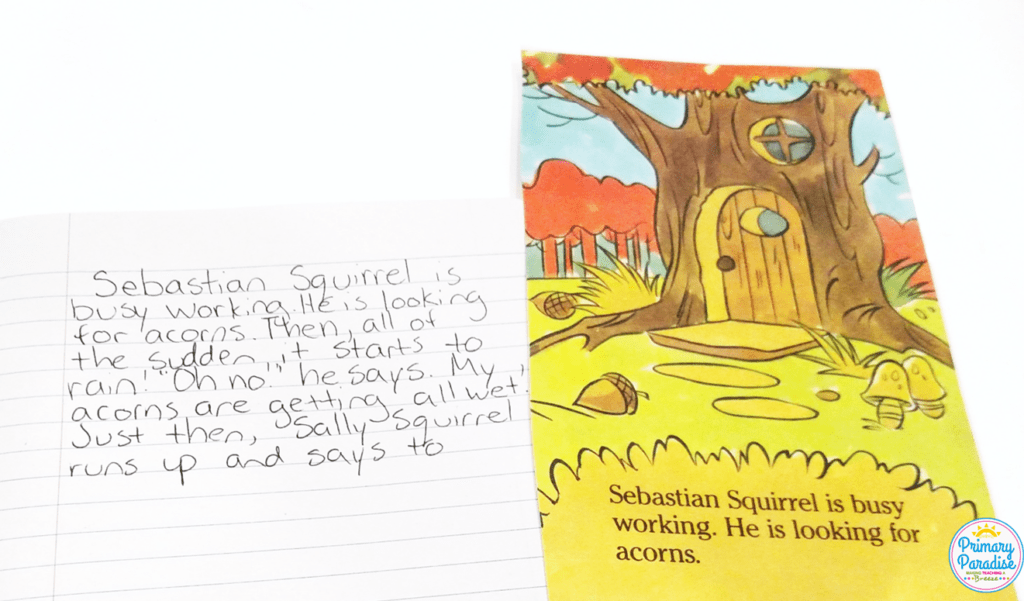 Sebastian Squirrel is
busy working. He is looking
for acorns. Then, all of
the sudden, it starts to
rain! "Oh no!" he says. My
acorns are getting all wet.
Just then, Sally Squirrel
runs up and says to
Sebastian Squirrel is busy
working. He is looking for
acorns.
Primary
Paradise
MAKING TEACHING A
Breeze